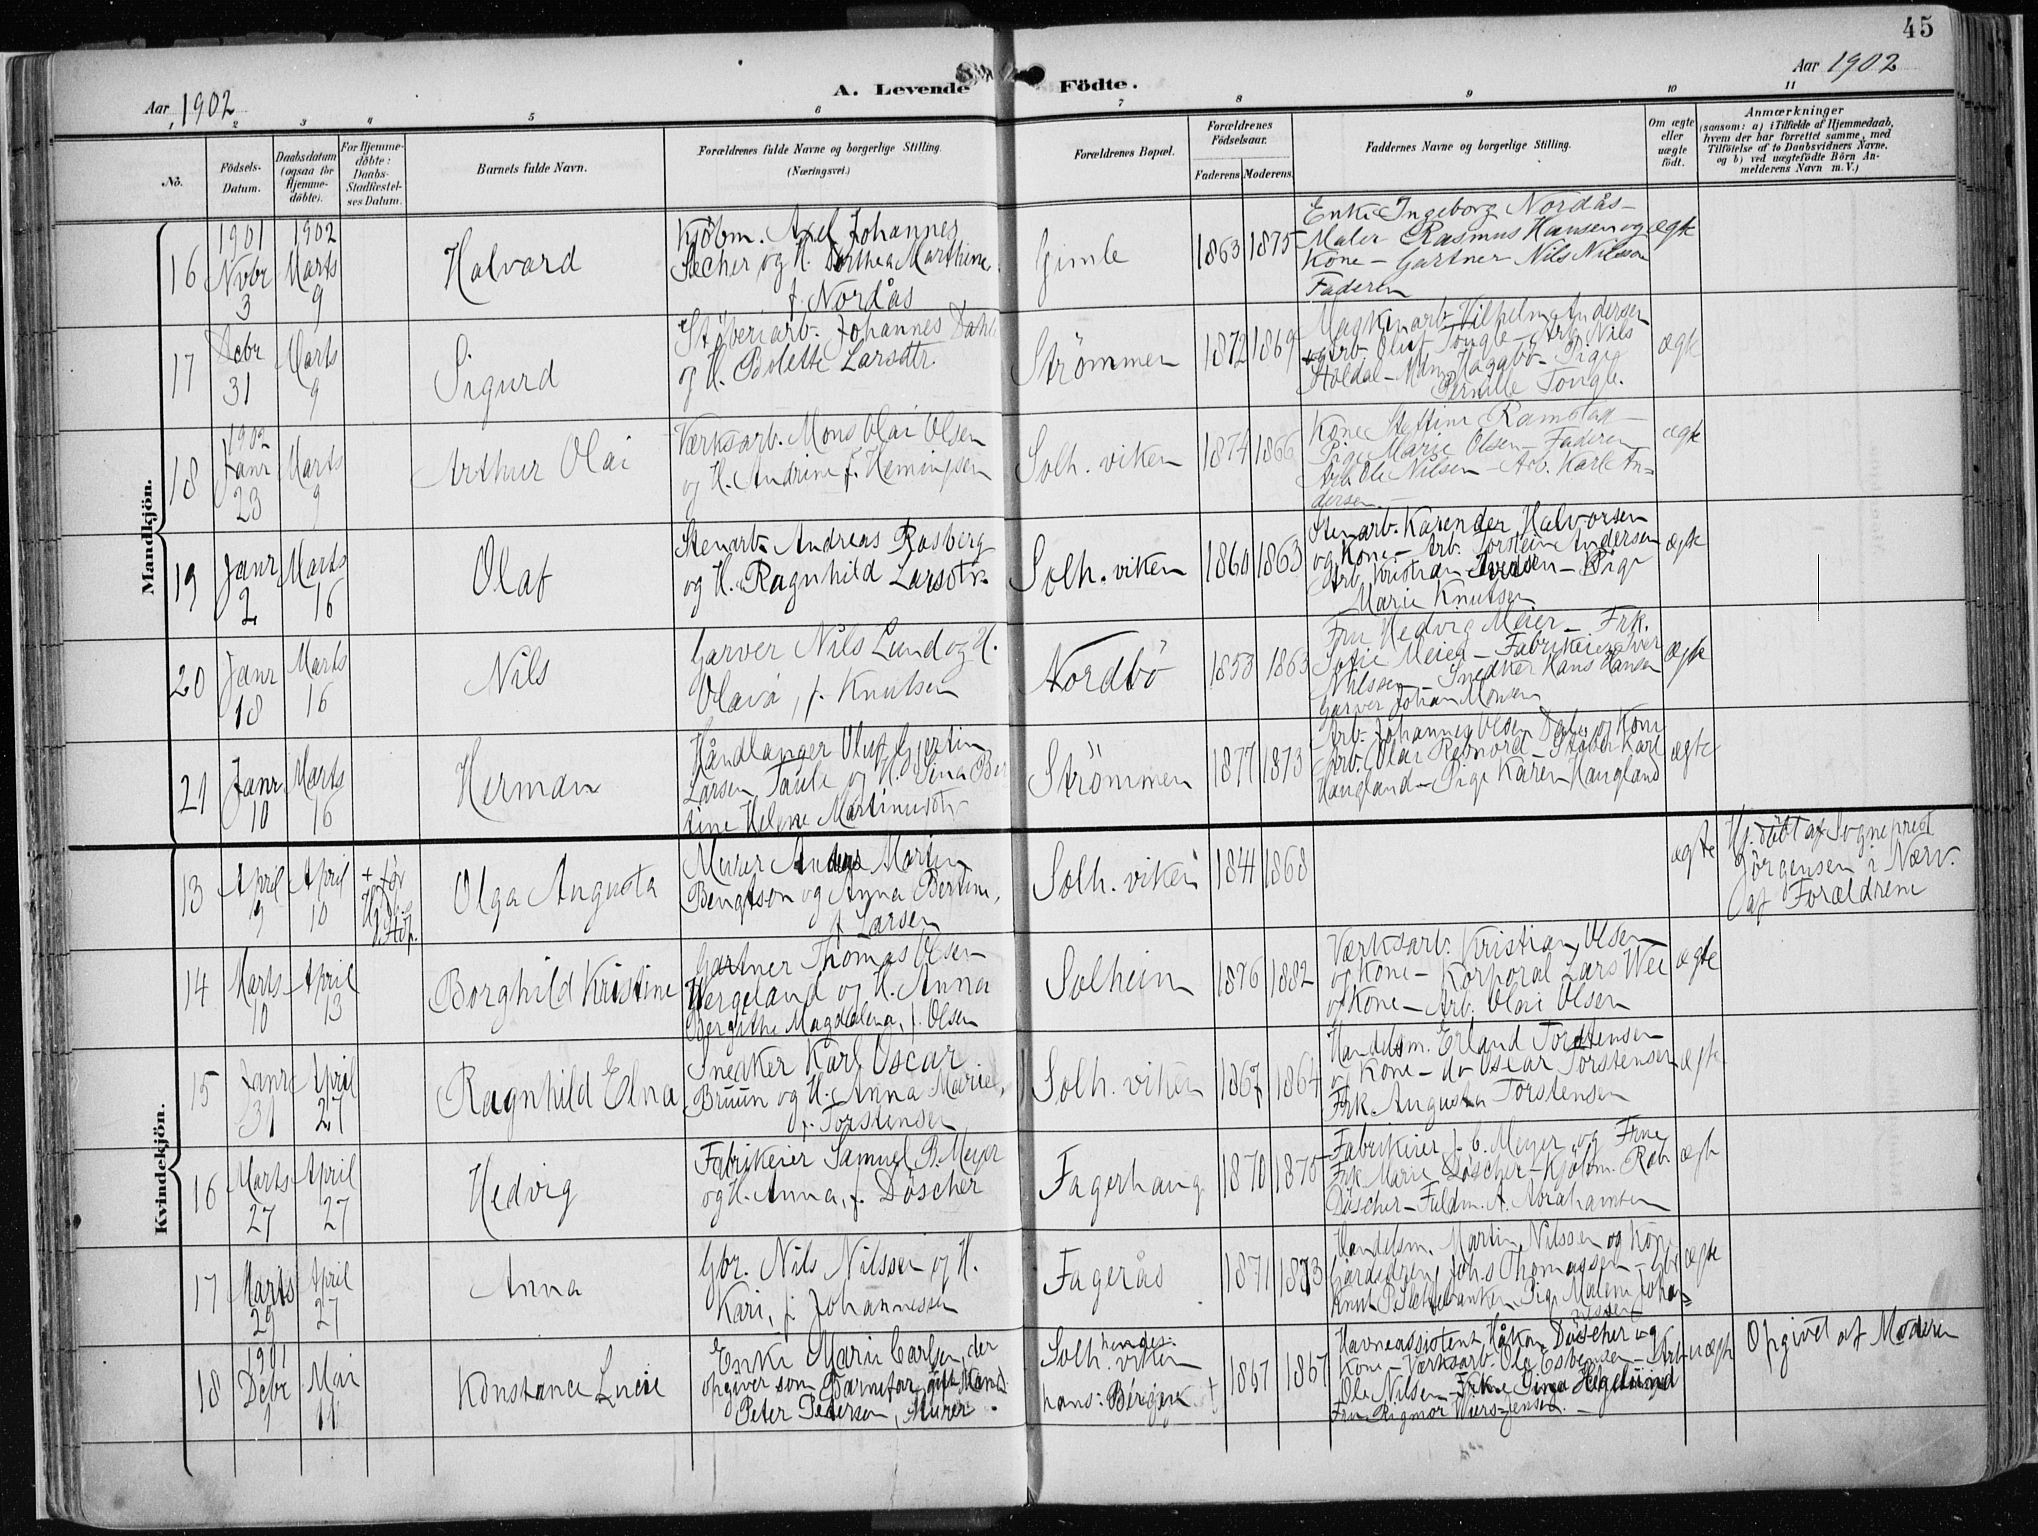 45
Aar 1902
A. Levende Födte.
Aar 1902
1 2 3 4 5 6 7 8 9 10 11
No.
Födsels-Datum.
Daabsdatum (ogsaa for Hjemme-döbte).
For Hjemme-döbte: Daabs-Stadfæstel-ses Datum.
Barnets fulde Navn.
Forældrenes fulde Navne og borgerlige Stilling. (Næringsvei.)
Forældrenes Bopæl.
Forældrenes Födselsaar.
Faderens Moderens
Faddernes Navne og borgerlige Stilling.
Om ægte eller uægte födt.
Anmærkninger
(saasom: a) i Tilfælde af Hjemmedaab, hvem der har forrettet samme, med Tilföielse af to Daabsvidners Navne, og b) ved uægtefödte Börn An-melderens Navn m. V.)
Mandkjön.
16 1901 Novbr 3 1902 Marts 9 Halvard
Kjöbm. Axel Johannes
Secher og H. Dorthea Marthine
f. Nordås
Gimle 1863 1875
Enke Ingeborg Nordås -
Maler Rasmus Hansen og
Kone - Gartner Nils Nilsson
Faderen
ægte
17 Debr 31 Marts 9 Sigurd
Støberiarb. Johannes Dahle
og H. Bolette Larsdtr.
Strömmen 1872 1869
Maskinarb. Vilhelm Andersen
Arb. Oluf Tongle - Arb. Nils
Holdal - Pige
Pernille Tongle.
ægte
18 1902 Janr 23 Marts 9 Arthur Olai
Værksarb. Mons Olai Olsen
og H. Andrine f. Hemingsen
Solh. viken 1874 1866
Kone Steffine Ramstad -
Pige Marie Olsen - Faderen
Arb. Ole Nilsen - Arb. Karl An-
dersen -
ægte
19 Janr 2 Marts 16 Olaf
Stenarb. Andreas Rasberg
og H. Ragnhild Larsdtr.
Solh. viken 1860 1863
Stenarb. Halvorsen
og Kone - Arb. Torstein Andersen
Arb. Kristian Iversen - Pige
Marie Knutsen
ægte
20 Janr 18 Marts 16 Nils
Garver Nils Lund og H.
Olava, f. Knutsen
Nordbö 1853 1863
Fru Hedvig Meier - Frk.
Sofie Meier - Fabrikeier
Nilssen - Snedker Hans Hansen
Garver Johan Monsen
ægte
21 Janr 10 Marts 16 Herman
Håndlanger Oluf Gjertin
Larsen Taule og H. Sina Ber
tine Helene Martinusdtr
Strömmen 1877 1873
Arb. Johannes Olsen Dale og Kone
Arb. Olai Remord - Støber Karl
Haugland - Pige Karen Haugland
ægte
Kvindekjön.
13 April 9 April 10
Olga Augusta
Murer Anders Martin
Bengtson og Anna Bertine,
f. Larsen
Solh. viken 1841 1868
ægte
Hj. döbt af Sogneprest
Jörgensen i Nærv.
af Forældrene
14 Marts 10 April 13 Borghild Kristine
Gartner Thomas Olsen
Wergeland og H. Anna
Bergithe Magdalena, f. Olsen
Solheim 1876 1882
Værksarb. Kristian Olsen
og Kone - Korporal Lars Wee
og Kone - Arb. Olai Olsen
ægte
15 Janr 31 April 27 Ragnhild Elna
Snedker Karl Oscar
Bruun og H. Anna Marie,
f. Torstensen
Solh. viken 1867 1864
Handelsm. Erland Torstensen
og Kone - do Oscar Torstensen
Frk. Augusta Torstensen
ægte
16 Marts 27 April 27 Hedvig
Fabrikeier Samuel B. Meyer
og H. Anna, f. Döscher
Fagerhaug 1870 1875
Fabrikeier J. C. Meyer og Frue
Frk Marie Döscher - Kjöbm. Rab.
Döscher - Fuldm. A. Abrahamsen
ægte
17 Marts 29 April 27 Anna
Gbr. Nils Nilssen og H.
Kari, f. Johannesen
Fagerås 1871 1873
Handelsm. Martin Nilssen og Kone
Gårdsdreng Johs Thomassen - Gbr
Knut P. - Pige Malene Johan=
nesen
ægte
18 1901 Debr 1 Mai 11 Konstance Lucie
Enke Marie Carlsen, der
opgiver som Barnefar gift Mand
Peter Pedersen, Murer.
hendes: Solh. viken
hans: Bergen 1867 1867
Havneassistent Håkon Döscher og
Kone - Værksarb. Ole Esbensen - Arb.
Ole Nilsen -
Fru Rigmor Wiers-Jensen. -
uægte
Opgivet af Moderen